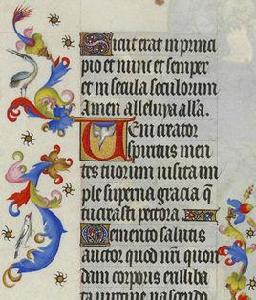 Sicut erat in princi
pio et nunc et semper
et in secula seculorum
Amen alleluya alla.
Veni creator
spiritus men
tes tuorum visita im
ple superna gracia q̄
tu creasti pectora
Memento salutis
auctor quod nr̄i quon
dam corporis ex illiba
ta virgine nascend